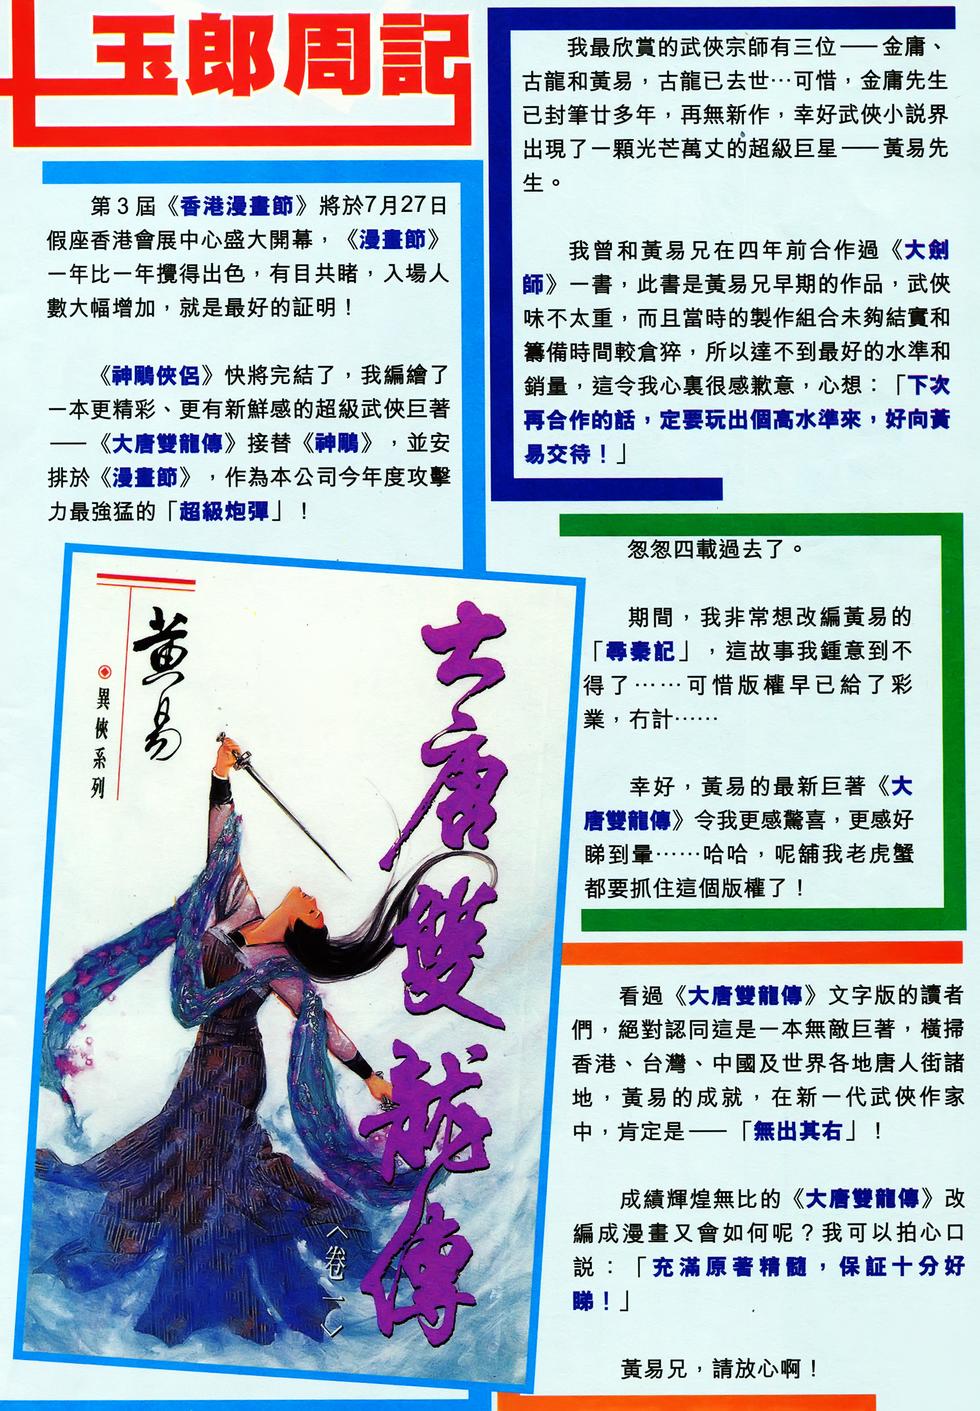 玉郎周記
第3屆《香港漫畫節》將於7月27日
假座香港會展中心盛大開幕，《漫畫節》
一年比一年攪得出色，有目共睹，入場人
數大幅增加，就是最好的証明！
《神鵰俠侶》快將完結了，我編繪了
一本更精彩、更有新鮮感的超級武俠巨著
──《大唐雙龍傳》接替《神鵰》，並安
排於《漫畫節》，作為本公司今年度攻擊
力最強猛的「超級炮彈」！
黃易
異俠系列
大唐雙龍傳
〈卷一〉
我最欣賞的武俠宗師有三位──金庸、
古龍和黃易，古龍已去世…可惜，金庸先生
已封筆廿多年，再無新作，幸好武俠小説界
出現了一顆光芒萬丈的超級巨星──黃易先
生。
我曾和黃易兄在四年前合作過《大劍
師》一書，此書是黃易兄早期的作品，武俠
味不太重，而且當時的製作組合未夠結實和
籌備時間較倉猝，所以達不到最好的水準和
銷量，這令我心裏很感歉意，心想：「下次
再合作的話，定要玩出個高水準來，好向黃
易交待！」
怱怱四載過去了。
期間，我非常想改編黃易的
「尋秦記」，這故事我鍾意到不
得了……可惜版權早已給了彩
業，冇計……
幸好，黃易的最新巨著《大
唐雙龍傳》令我更感驚喜，更感好
睇到暈……哈哈，呢舖我老虎蟹
都要抓住這個版權了！
看過《大唐雙龍傳》文字版的讀者
們，絕對認同這是一本無敵巨著，橫掃
香港、台灣、中國及世界各地唐人街諸
地，黃易的成就，在新一代武俠作家
中，肯定是──「無出其右」！
成績輝煌無比的《大唐雙龍傳》改
編成漫畫又會如何呢？我可以拍心口
説：「充滿原著精髓，保証十分好
睇！」
黃易兄，請放心啊！